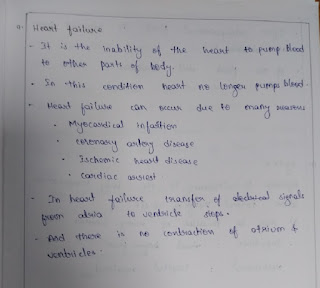 9. Heart failure
- It is the inability of the heart to pump blood
to other parts of body.
- In this condition heart no longer pumps blood.
- Heart failure can occur due to many reasons
• Myocardical infaction
• coronary artery disease
• Ischemic heart disease
• cardiac arrest
- In heart failure transfer of electrical signals
from atria to ventricle stops.
- And there is no contraction of atrium &
ventricles.